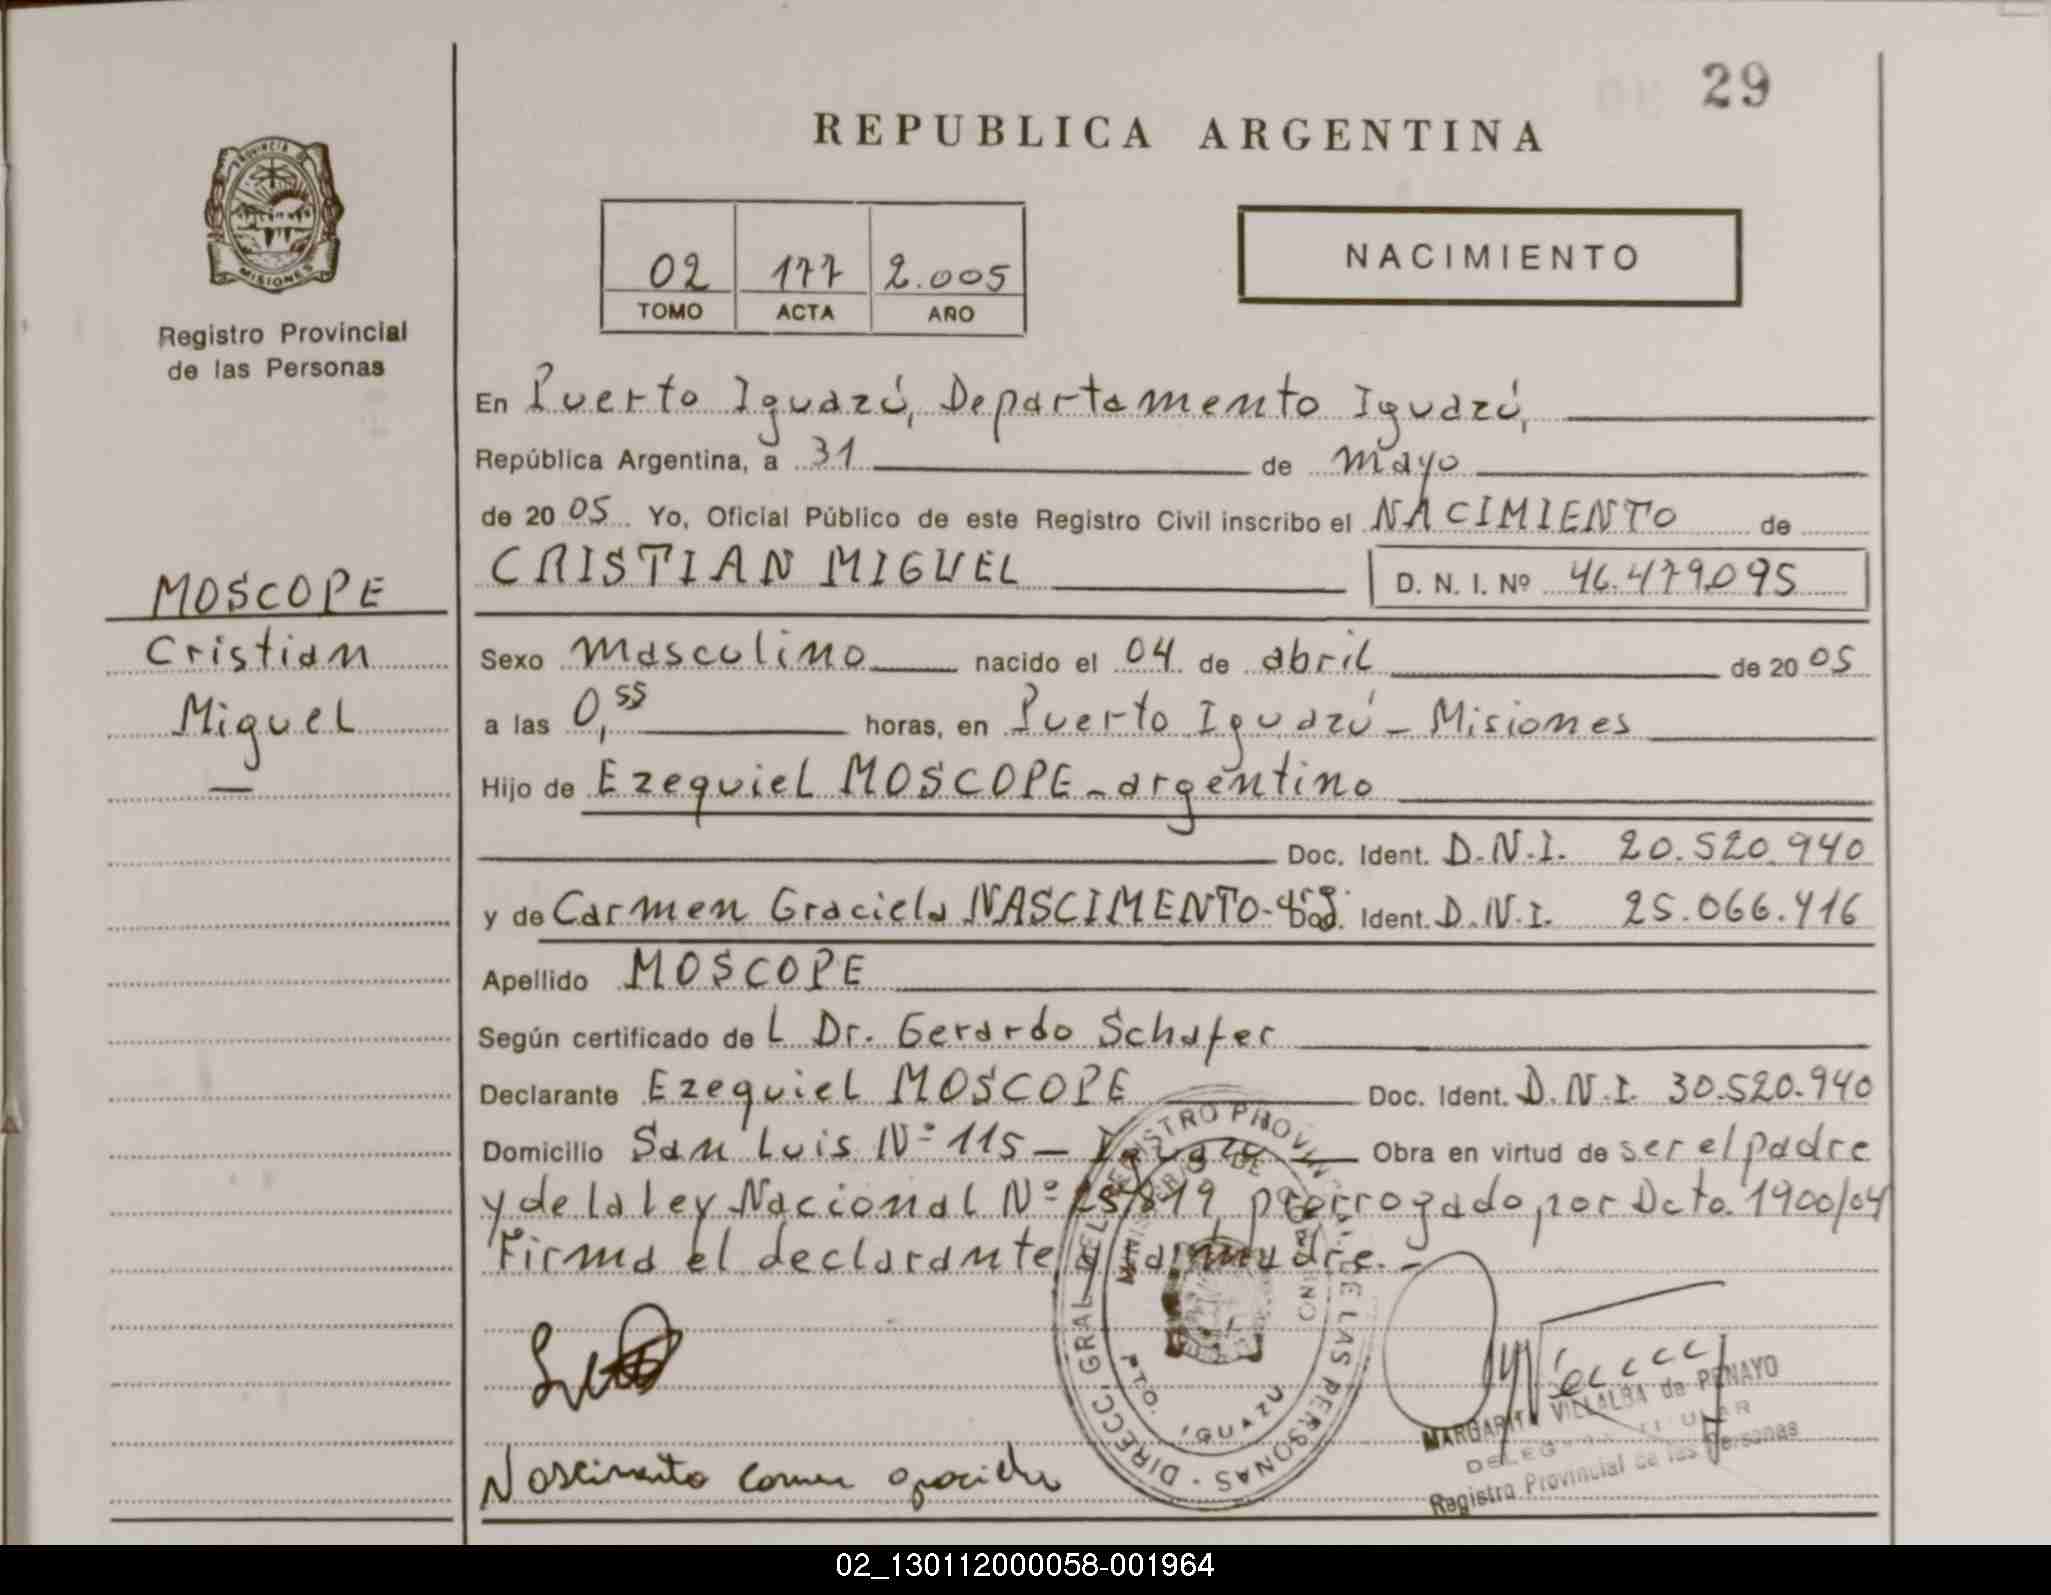 29
REPUBLICA ARGENTINA
PROVINCIA DE
MISIONES
Registro Provincial
de las Personas
02 177 2.005
TOMO ACTA AÑO
NACIMIENTO
En Puerto Iguazú, Departamento Iguazú,
República Argentina, a 31 de mayo
de 20 05 Yo, Oficial Público de este Registro Civil inscribo el NACIMIENTO de
CRISTIAN MIGUEL D. N. I. Nº 46.479.095
MOSCOPE
Cristian
Miguel
—
Sexo masculino nacido el 04 de abril de 20 05
a las 0,55 horas, en Puerto Iguazú - Misiones
Hijo de Ezequiel MOSCOPE - argentino
Doc. Ident. D.N.I. 20.520.940
y de Carmen Graciela NASCIMENTO - arg. Doc. Ident. D.N.I. 25.066.416
Apellido MOSCOPE
Según certificado de L Dr. Gerardo Schafer
Declarante Ezequiel MOSCOPE Doc. Ident. D.N.I. 30.520.940
Domicilio San Luis Nº 115 - Iguazú Obra en virtud de ser el padre
y de la Ley Nacional Nº 25.819 prorrogado por Dcto. 1900/04
Firma el declarante y la madre. -
DIRECC. GRAL. DEL REGISTRO PROVINCIAL DE LAS PERSONAS
MINISTERIO DE GOBIERNO
PTO. IGUAZU
MARGARITA VILLALBA de PENAYO
DELEGADA TITULAR
Registro Provincial de las Personas
Nascimento Carmen graciela
02_130112000058-001964